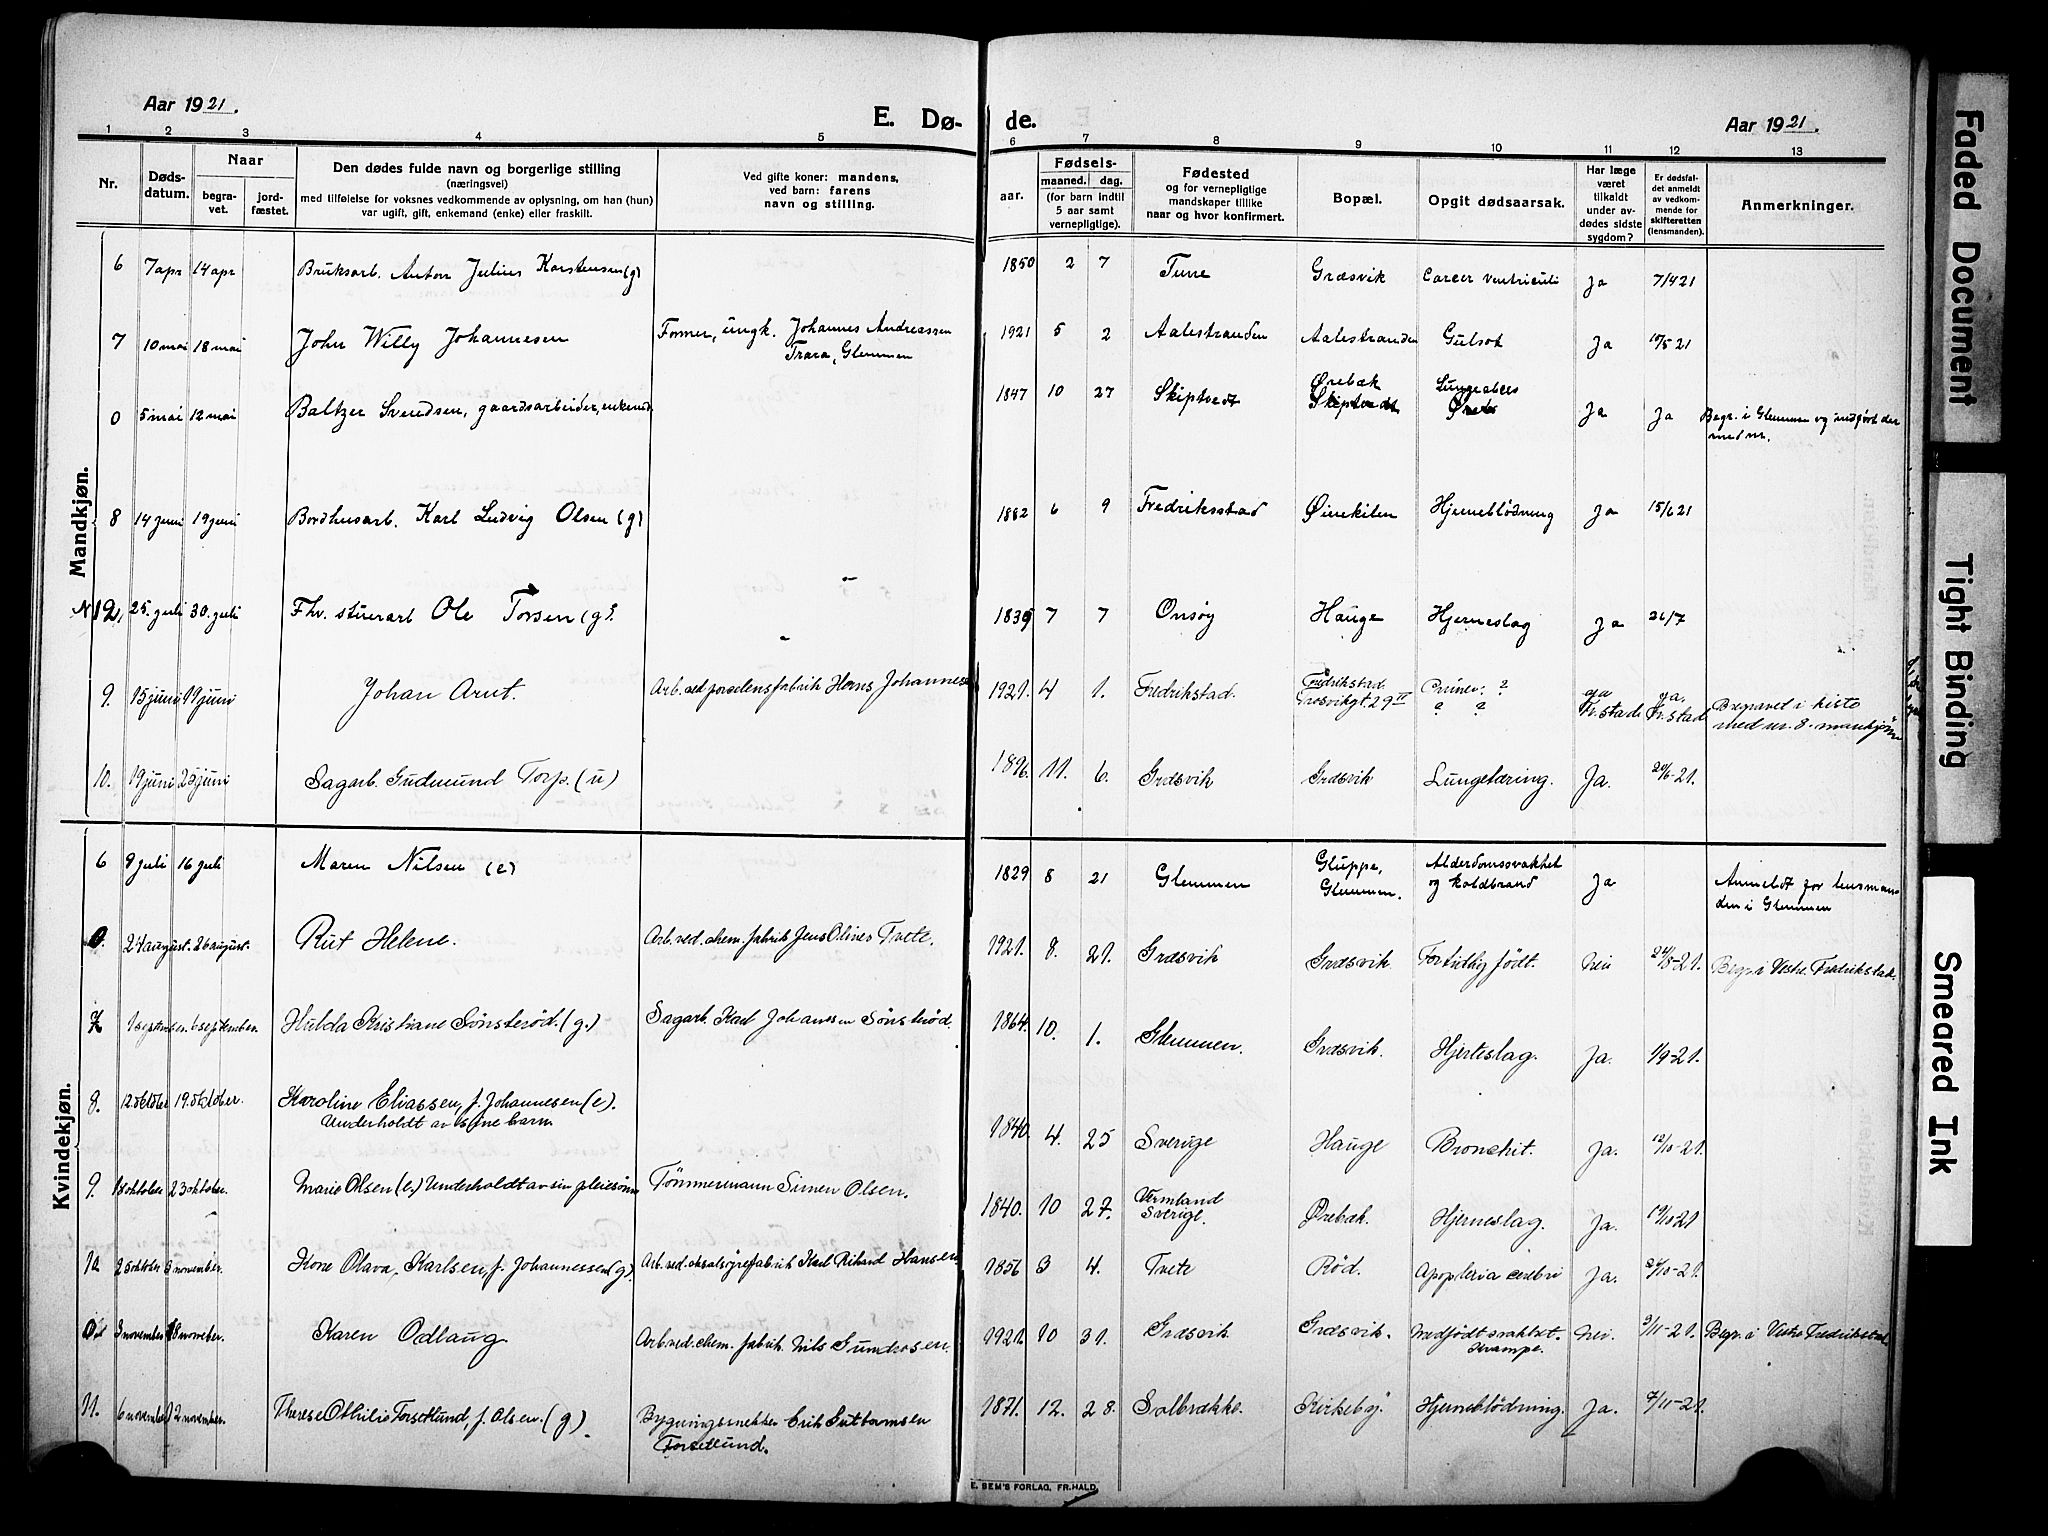 Aar 1921.
E. Dø- de.
Aar 1921.
1 2 3 4 5 6 7 8 9 10 11 12 13
Nr.
Døds-
datum.
Naar
begra-
vet.
jord-
fæstet.
Den dødes fulde navn og borgerlige stilling
(næringsvei)
med tilføielse for voksnes vedkommende av oplysning, om han (hun)
var ugift, gift, enkemand (enke) eller fraskilt.
Ved gifte koner: mandens,
ved barn: farens
navn og stilling.
aar.
Fødsels-
maaned. dag.
(for barn indtil
5 aar samt
vernepligtige).
Fødested
og for vernepligtige
mandskaper tillike
naar og hvor konfirmert.
Bopæl.
Opgit dødsaarsak.
Har læge
været
tilkaldt
under av-
dødes sidste
sygdom?
Er dødsfal-
det anmeldt
av vedkom-
mende for
skifteretten
(lensmanden).
Anmerkninger.
Mandkjøn.
6 7 apr 14 apr Bruksarb. Anton Julius Karstensen (g) 1850 2 7 Tune Græsvik Cancer ventriculi Ja 7/4 21
7 10 mai 18 mai John Willy Johannesen Former, ungk. Johannes Andreassen
Trara, Glemmen 1921 5 2 Aalestranden Aalestranden Gulsot Ja 10/5 21
0 5 mai 12 mai Baltzer Svendsen, gaardsarbeider, enkemd 1847 10 27 Skiptvedt Ørebæk
Skiptvedt Lungeabces Ja Ja Begr. i Glemmen og indført der
med nr.
8 14 juni 19 juni Bordhusarb. Karl Ludvig Olsen (g) 1882 6 9 Fredriksstad Øinekilen Hjerneblødning Ja 15/6 21
N 12, 25. juli 30. juli Fhv. stuerarb Ole Torsen (g). 1839 7 7 Onsøy Hauge Hjerneslag Ja 26/7
9. 15 juni 19 juni Johan Arnt. Arb. ved porselensfabrik Hans Johannesen 1921. 4 1. Fredrikstad. Fredrikstad.
Græsvikgt. 29 II ? ? ? Ja
Fr.stad Ja.
Fr.stad Begravet i kiste
med nr. 8. mankjøn
10. 19 juni 25 juni Sagarb. Gudmund Torp. (u) 1896. 11. 6. Græsvik Græsvik Lungetæring. Ja. 20/6-21.
Kvindekjøn.
6 9 juli 16 juli Maren Nilsen (e) 1829 8 21 Glemmen Gluppe,
Glemmen. Alderdomssvakhet
og koldbrand Ja Anmeldt for lensman-
den i Glemmen
0. 24 august. 26 august. Rut Helene. Arb. ved. chem. fabrik Jens Olines Tvete. 1921. 8. 21. Græsvik Græsvik Fortidlig født. Nei 24/8-21. Begr. i Vestre Fredrikstad.
7. 1 september. 6 september. Hulda Kristiane Sønsterød. (g.) Sagarb. Karl Johansen Sønsterød. 1864. 10. 1. Glemmen. Græsvik. Hjerteslag. Ja. 1/9-21.
8. 12. oktober 19. oktober. Karoline Eliassen, f. Johannesen (e).
Underholdt av sine barn. 1840. 4. 25 Sverige Hauge Bronchit. Ja. 12/10-21.
9. 18 oktober 23 oktober. Marie Olsen (e.) Underholdt av sin pleiesønn Tømmermann Simen Olsen. 1840. 10 27. Vermland
Sverige. Ørebæk. Hjerneslag. Ja. 19/10-21
10. 25 oktober 3 november. Kone Olava, Karlsen, f. Johannessen (g). Arb. ved. oksalsyrefabrik Karl Rikard Hansen. 1856 3 4. Tvete Rød. Apoplexia cerebri Ja. 26/10-21.
0. 3 november 8 november. Karen Odlaug Arb. ved. chem. fabrik. Nils Gundersen. 1921. 10 31. Græsvik Græsvik. Medfødt svakhet.
Krampe. Nei. 3/11-21. Begr. i Vestre Fredrikstad.
11. 6 november 12 november. Therese Othilie Torsetlund, f. Olsen. (g). Bygningssnekker Erik Guttormsen
Torsetlund. 1871. 12. 28. Solbrække. Kirkeby. Hjerneblödning. Ja. 7/11-21.
E. SEM'S FORLAG, FR.HALD.
Faded Document
Tight Binding
Smeared Ink